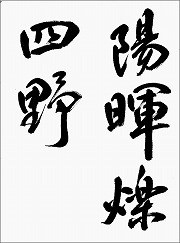 陽暉燦
四野